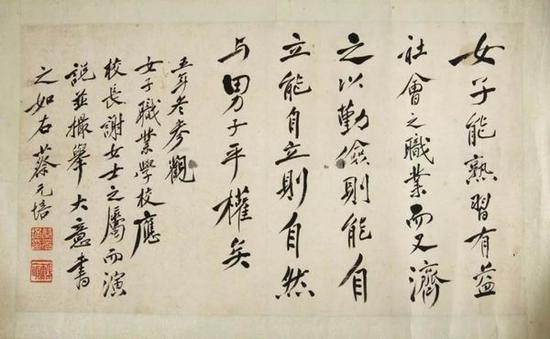 女子能熟習有益
社會之職業而又濟
之以勤儉則能自
立能自立則自然
与男子平權矣
五年冬參觀
女子職業學校應
校長謝女士之屬而演
說並撮舉大意書
之如右 蔡元培